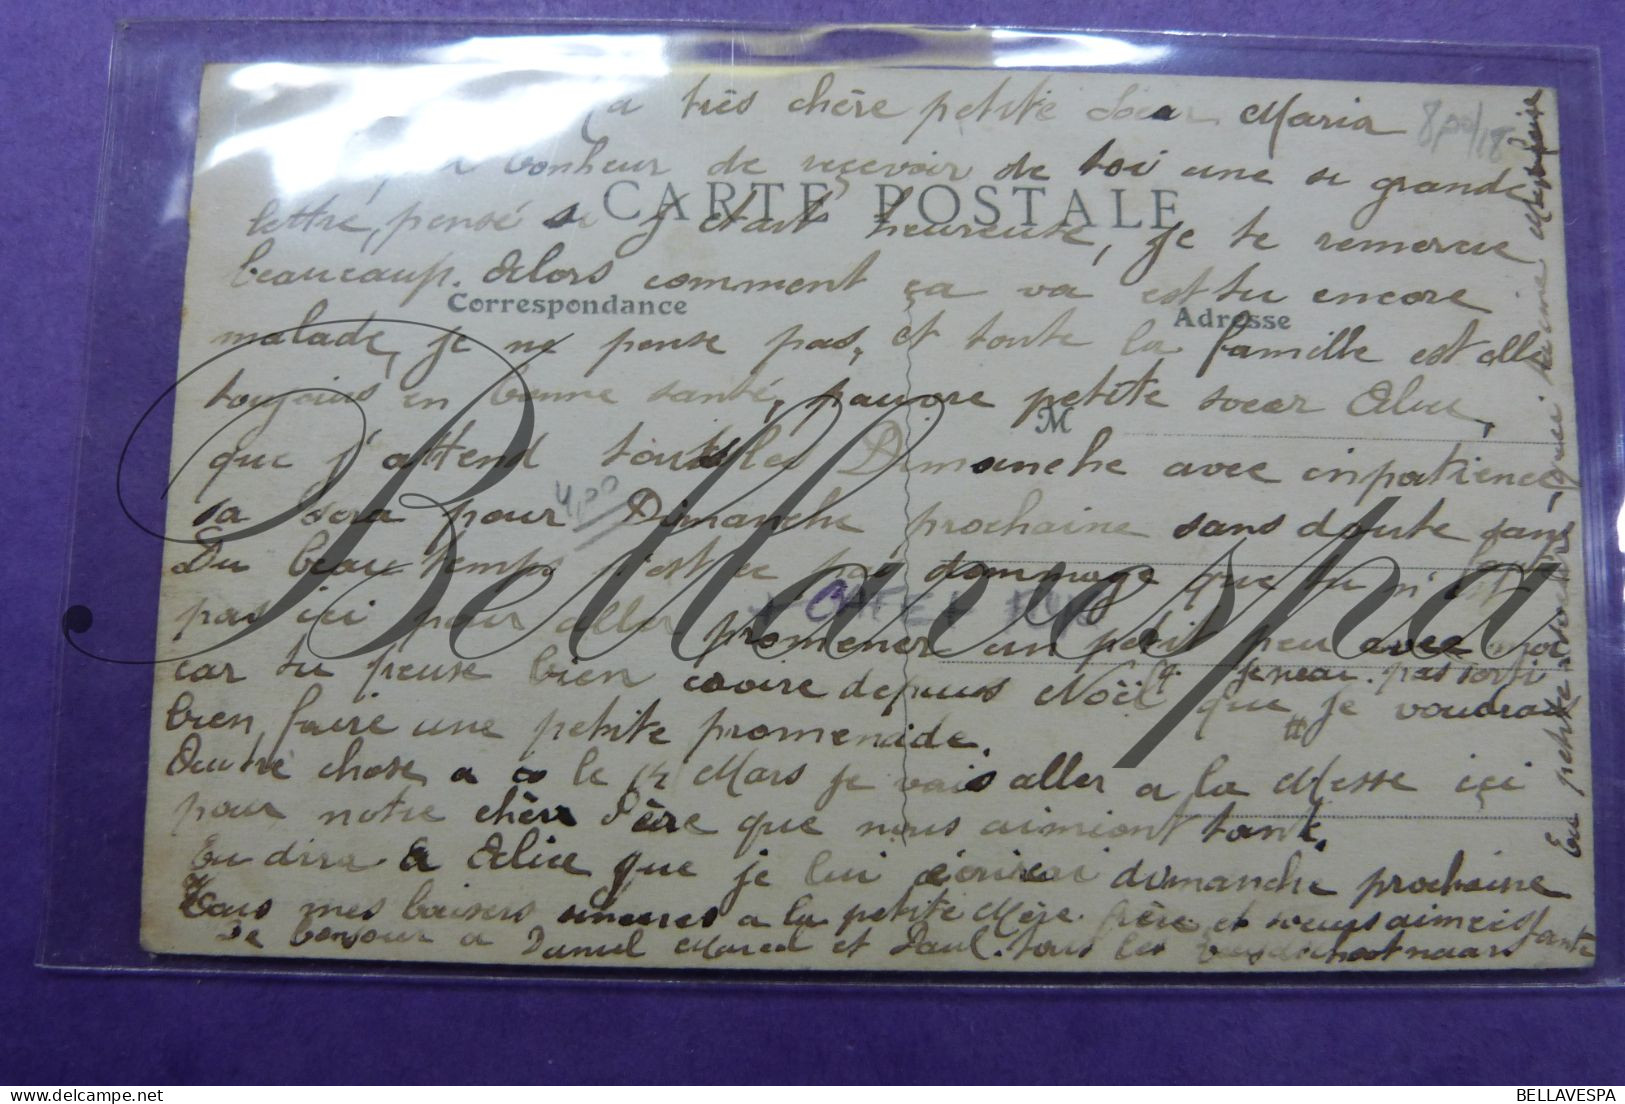 a très chère petite Sœur Maria
8,00/18
bonheur de reçevoir de toi une si grande
CARTE POSTALE
lettre, pensé si j'était heureuse, je te remercie
beaucoup. Alors comment ça va est tu encore
Correspondance
Adresse
malade, je ne pense pas, et toute la famille est elle
toujours en bonne santé, pauvre petite soeur Alice,
M
que j'attend tout les Dimanche avec inpatience
4,00
sa sera pour Dimanche prochaine sans doute
Du beau temps c'est dommage que tu n'est
pas ici pour aller promener un petit peu avec moi
car tu peuse bien croire depuis Noël je neai pas sorti
que je voudrais
bien faire une petite promenade.
Autre chose a le 14 Mars je vais aller a la Messe içi
pour notre chère Père que nous aimiont tant.
Tu dira a Alice que je lui écrirai dimanche prochaine
Tous mes baisers sinceres a la petite Mère frère et soeurs aimeés
De bonjour a Daniel Marcel et Paul. tous les
Bellavespa
BELLAVESPA